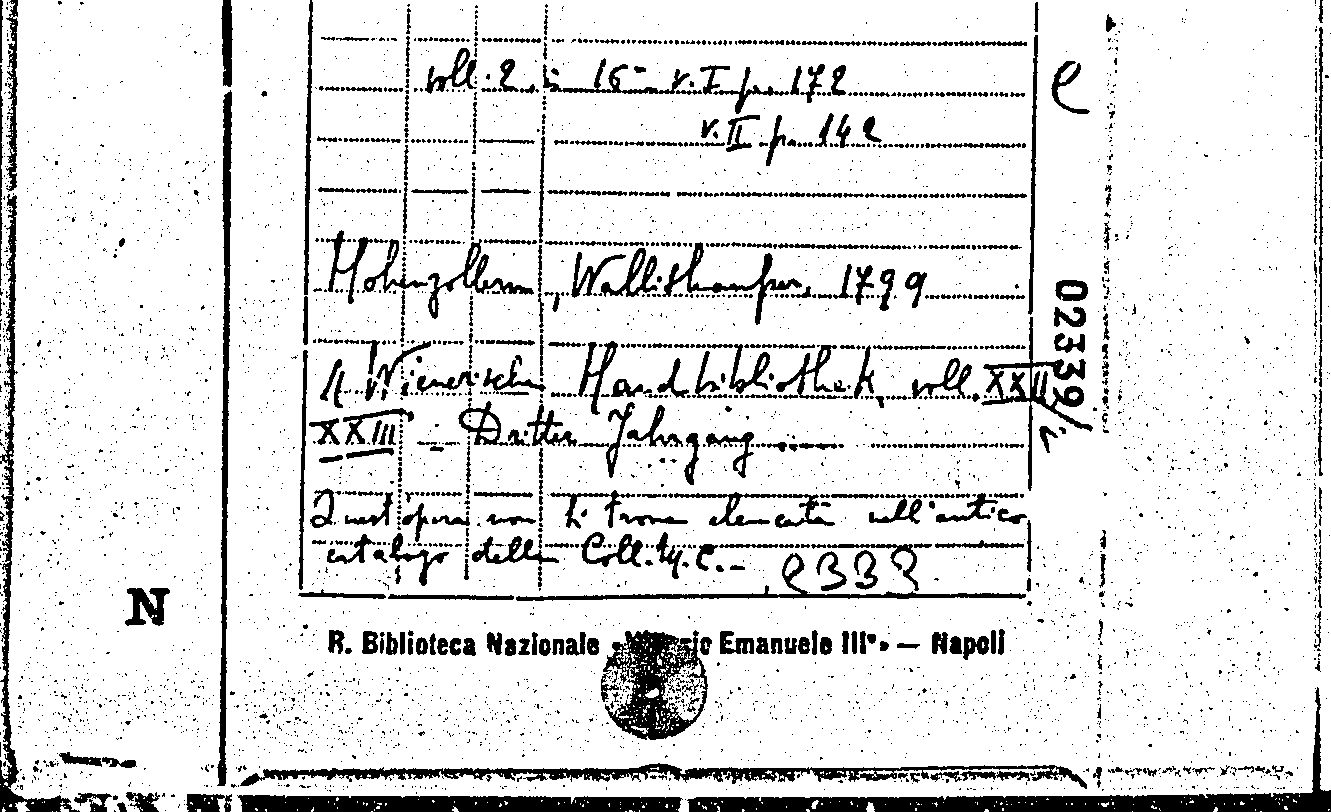 voll. 2. in 16° v. I p. 172
v. II p. 142
Hohenzollern, Wallishauser, 1799
// Wienerische Handbibliothek, voll. XXII
XXIII - Dritter Jahrgang
Quest'opera non si trova elencata nell'antico
catalogo della Coll. M. C. - 2339
R. Biblioteca Nazionale « Vittorio Emanuele III° » — Napoli
N
e
02339/i